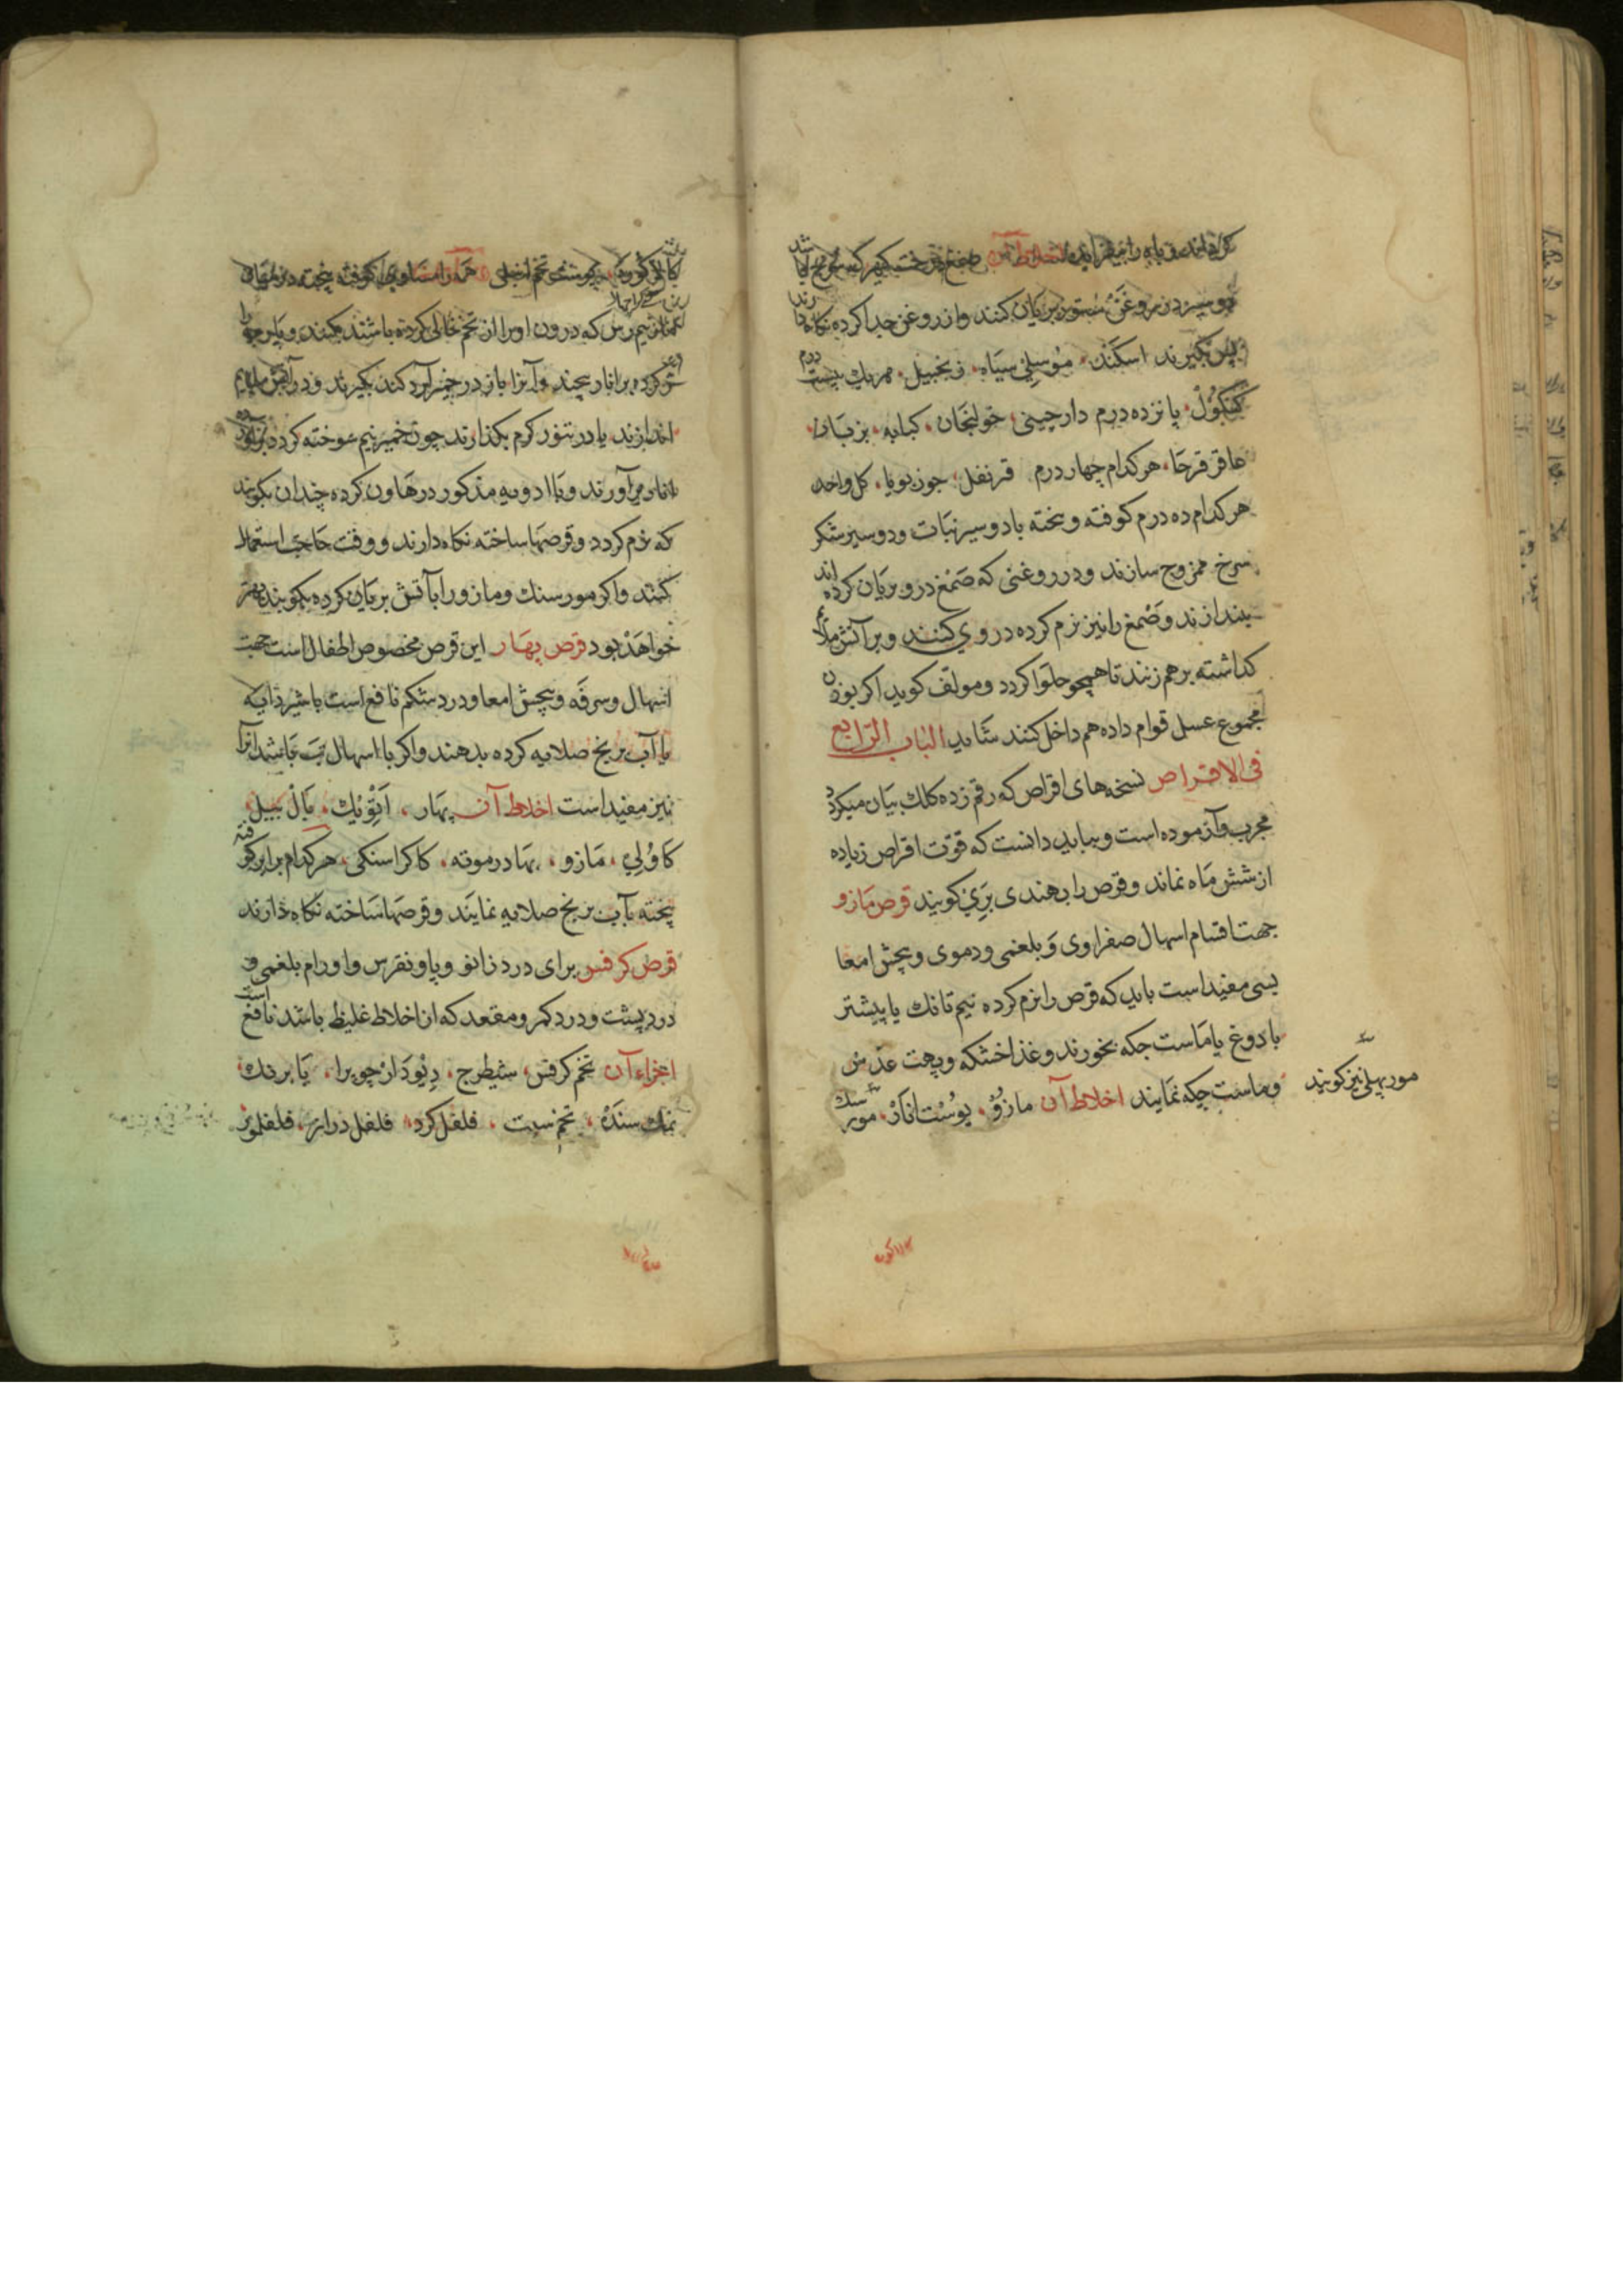 و باه را اخلاط آن صمغ درخت
دو سیر در روغن ستور بریان کنند و از روغن جدا کرده نکاه دارند
پس بکیرند اسکند موسلی سیاه زنجبیل هر یک بیست درم
کنکول پانزده درم دارچینی خولنجان کبابه بزباز
عاقرقرحا هر کدام چهار درم قرنفل جوزبویا کل واحد
هر کدام ده درم کوفته و بیخته با دو سیر نبات و دو سیر شکر
سرخ ممزوج سازند و در روغنی که صمغ درو بریان کرده اند
بیندازند و صمغ را نیز نرم کرده در وی کنند و بر آتش ملائم
کذاشته بر هم زنند تا همچو حلوا کردد و مولف کوید اکر بوزن
مجموع عسل قوام داده هم داخل کنند شاید الباب الرابع
فی الاقراص نسخهای اقراص که رقم زده کلک بیان میکردد
مجرب و آزموده است و بباید دانست که قوت اقراص زیاده
از شش ماه نماند و قرص را بهندی بَرِي کویند قرص مازو
جهت اقسام اسهال صفراوی و بلغمی و دموی و پیچش امعا
بسی مفید است باید که قرص را نرم کرده نیم تانک یا پیشتر
با دوغ یا ماست جکه بخورند و غذا خشکه و پهت عدس
و ماست چکه نمایند اخلاط آن مازو پوست انار مور سنک
مور پهلی نیز کویند
پوست تخم همه را مساوی کوفته بیخته در میان
نیم رس که درون او را از تخم خالی کرده باشند بکنند و پارچه را
تر کرده بر انار پیچند و آنرا باز در خمیر آرد کندم بکیرند و در آتش ملایم
اندازند یا در تنور کرم بکذارند چون خمیر نیم سوخته کردد برآورده
انار می آورند و با ادویه مذکور در هاون کرده چندان بکوبند
که نرم کردد و قرصها ساخته نکاه دارند و وقت حاجت استعمال
کنند و اکر مورسنک و مازو را بآتش بریان کرده بکوبند بهتر
خواهد بود قرص بهار این قرص مخصوص اطفال است جهت
اسهال و سرفه و پیچش امعا و درد شکم نافع است با شیر دایه
یا آب برنج صلایه کرده بدهند و اکر با اسهال تب باشد آنرا
نیز مفید است اخلاط آن بهار اتویک بال بیل
کاولي مازو بهادرموته کاکراسنکی هر کدام برابر کوفته
پخته بآب برنج صلایه نمایند و قرصها ساخته نکاه دارند
قرص کرفس برای درد زانو و پا و نقرس و اورام بلغمی و
درد پشت و درد کمر و مقعد که از اخلاط غلیظ باشد نافع است
اجزاء آن تخم کرفس شیطرج دیودار چوبرا بابرنک
نمک سنده تخم سبت فلفل کرد فلفل دراز فلفلمویه